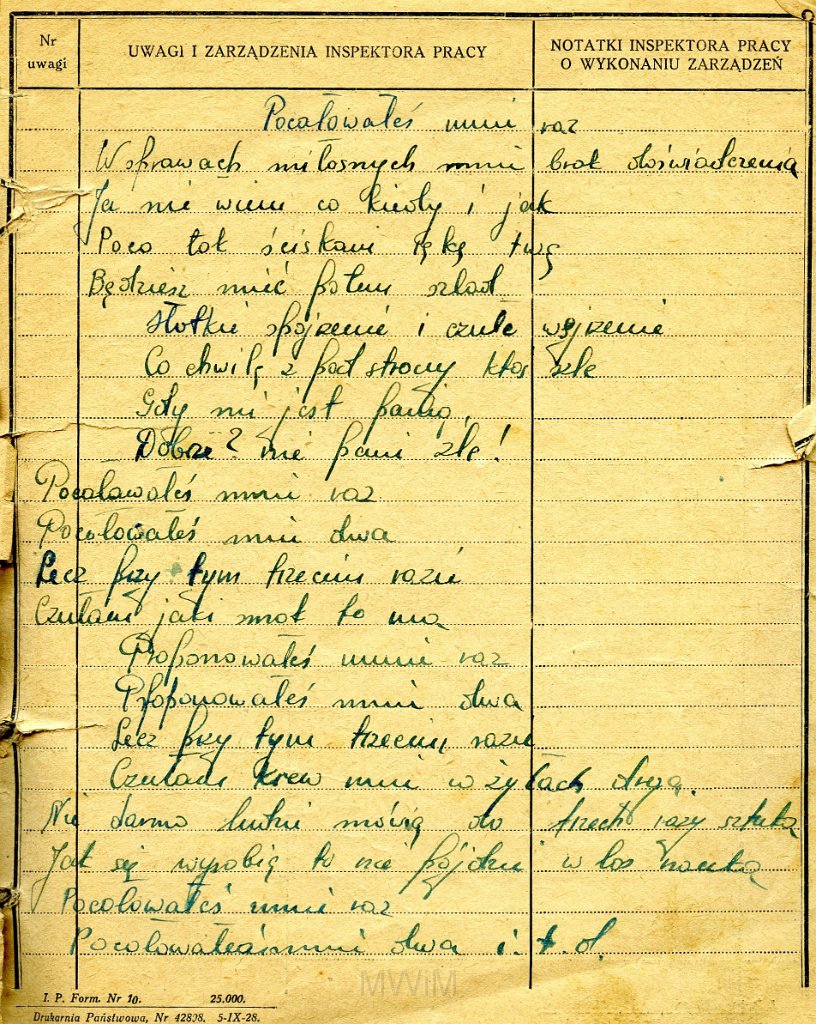 Nr
uwagi
UWAGI I ZARZĄDZENIA INSPEKTORA PRACY
NOTATKI INSPEKTORA PRACY
O WYKONANIU ZARZĄDZEŃ
Pocałowałeś mnie raz
W sprawach miłosnych mnie brak doświadczenia
Ja nie wiem co kiedy i jak
Poco tak ściskam rękę twę
Będziesz mieć potem szlad
Słotkie spójrzenie i czułe wejrzenie
Co chwilę z pod strony ktoś szle
Gdy nie jest panią,
Dobrze? nie pani źle!
Pocałowałeś mnie raz
Pocałowałeś mnie dwa
Lecz przy tym trzecim razie
Czułam jaki smak to ma
Proponowałeś mnie raz
Proponowałeś mnie dwa
Lecz przy tym trzecim razie
Czułam krew mnie w żyłach drga.
Nie darmo ludzie mówią do trzech razy sztuka
Jak się wyrobię to nie pójdzie w los nauka
Pocałowałeś mnie raz
Pocałowałeś mnie dwa i. t. d.
I. P. Form. Nr 10. 25.000.
Drukarnia Państwowa, Nr 42898. 5-IX-28.
MWiM